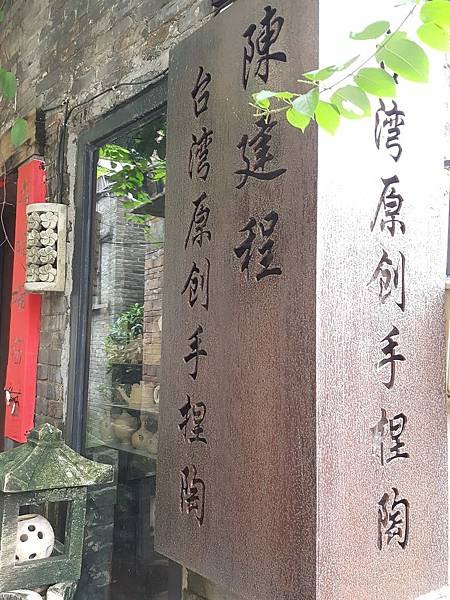 陳建程
台湾原创手捏陶
湾原创手捏陶